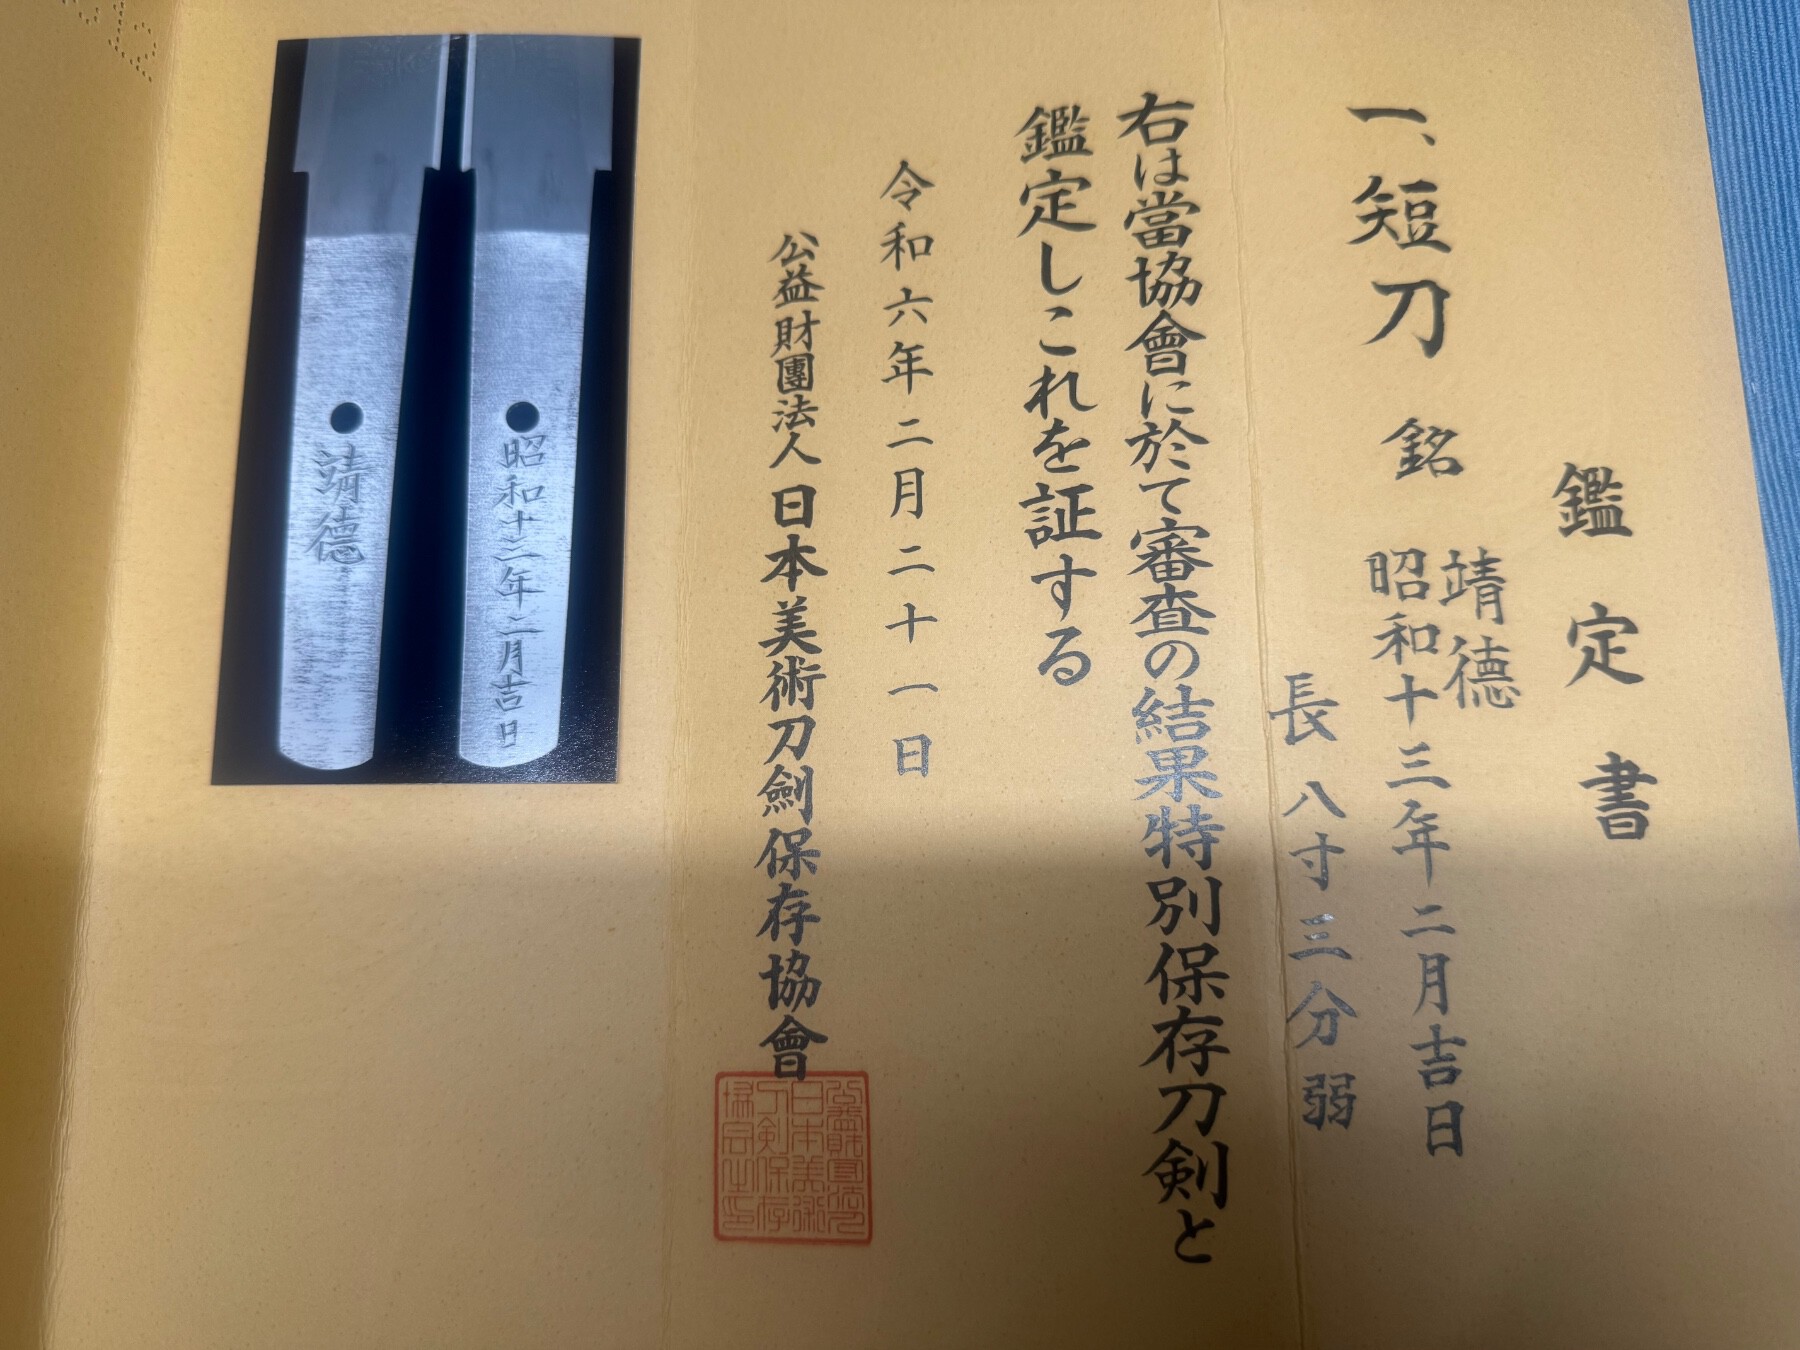 鑑定書
一、短刀 銘 靖德
昭和十三年二月吉日
長八寸三分弱
右は當協會に於て審査の結果特別保存刀剣と
鑑定しこれを証する
令和六年二月二十一日
公益財團法人日本美術刀劍保存協會
昭和十三年二月吉日
靖德